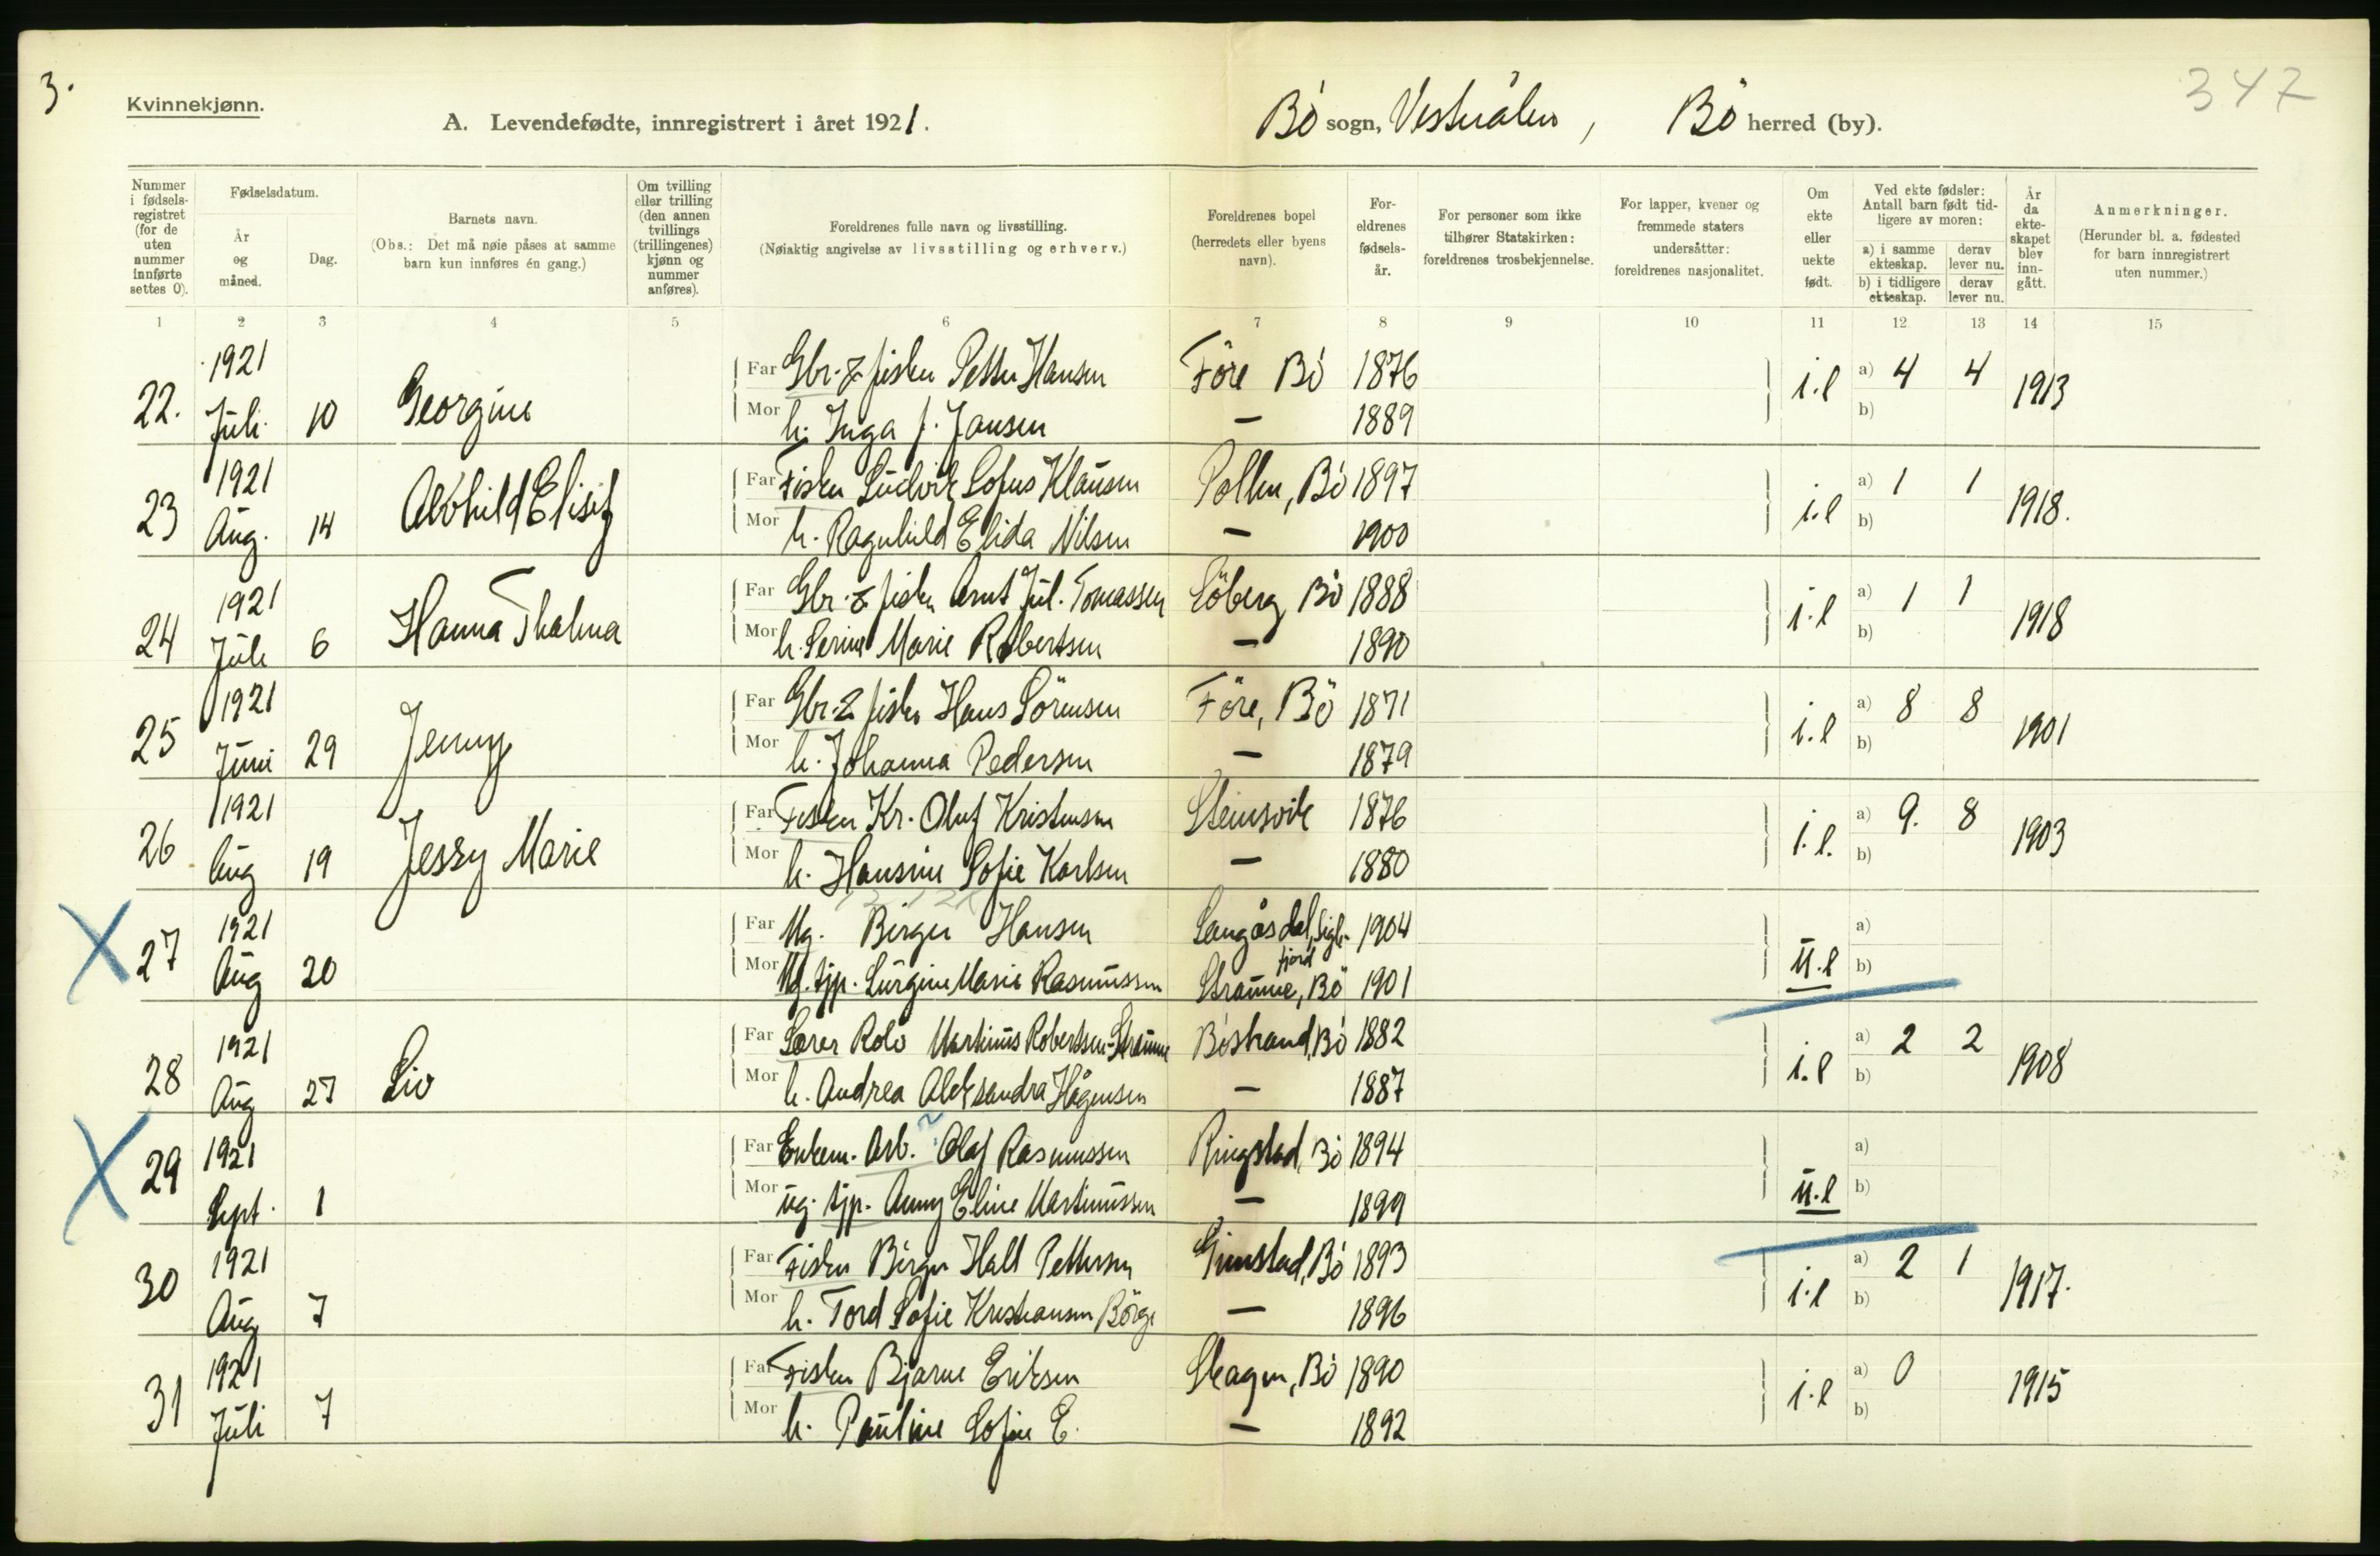 3.
Kvinnekjønn.
A. Levendefødte, innregistrert i året 1921.
Bö sogn, Vesterålen, Bö herred (by).
347
Nummer i fødsels-registret (for de uten nummer innførte settes 0).
Fødselsdatum.
År og måned.
Dag.
Barnets navn.
(Obs.: Det må nøie påses at samme barn kun innføres én gang.)
Om tvilling eller trilling (den annen tvillings (trillingenes) kjønn og nummer anføres).
Foreldrenes fulle navn og livsstilling.
(Nøiaktig angivelse av livsstilling og erhverv.)
Foreldrenes bopel (herredets eller byens navn).
For-eldrenes fødsels-år.
For personer som ikke tilhører Statskirken: foreldrenes trosbekjennelse.
For lapper, kvener og fremmede staters undersåtter: foreldrenes nasjonalitet.
Om ekte eller uekte født.
Ved ekte fødsler: Antall barn født tid-ligere av moren:
a) i samme ekteskap.
derav lever nu.
b) i tidligere ekteskap.
derav lever nu.
År da ekte-skapet blev inn-gått.
Anmerkninger.
(Herunder bl. a. fødested for barn innregistrert uten nummer.)
1 2 3 4 5 6 7 8 9 10 11 12 13 14 15
22. 1921 Juli 10 Georgine
Far Gbr. & fisker Petter Hansen Före Bö 1876 i.e a) 4 4 1913
Mor h. Inga J. Jansen — 1889 b)
23 1921 Aug. 14 Alvhild
Far Fisker Ludvik Sofus Klausen Pollen, Bö 1897 i.e a) 1 1 1918.
Mor h. Ragnhild Elida Nilsen — 1900 b)
24 1921 Juli 6 Hanna Thalma
Far Gbr. & fisker Arnt Jul. Tomassen Söberg Bö 1888 i.e a) 1 1 1918
Mor h. Serine Marie Robertsen — 1890 b)
25 1921 Juni 29 Jenny
Far Gbr. & fisker Hans Sörensen Före, Bö 1871 i.e a) 8 8 1901
Mor h. Johanna Pedersen — 1879 b)
26 1921 Aug 19 Jessy Marie
Far Fisker Kr. Oluf Kristensen Steinsvik 1876 i.e. a) 9. 8 1903
Mor h. Hansine Sofie Karlsen — 1880 b)
27 1921 Aug 20
Far Ug. Birger Hansen Langåsdal, Sigerfjord 1904 u.e a)
Mor Ug. tjp. Marie Rasmussen Straume, Bö 1901 b)
28 1921 Aug 27 Liv
Far Lærer Martinus Robertsen-Straume Böstrand, Bö 1882 i.e a) 2 2 1908
Mor h. Andrea Aleksandra Hågensen — 1887 b)
29 1921 Sept. 1
Far Enkem. Arb. Olaf Rasmussen Ringstad, Bö 1894 u.e a)
Mor ug. tjp. Anny Eline Martinussen — 1899 b)
30 1921 Aug 7
Far Fisker Birger Hall Pettersen Grimstad, Bö 1893 i.e a) 2 1 1917.
Mor h. Tord Sofie Kristiansen — 1896 b)
31 1921 Juli 7
Far Fisker Bjarne Eriksen Skagen, Bö 1890 i.e a) 0 1915
Mor h. Pauline Sofie E. — 1892 b)